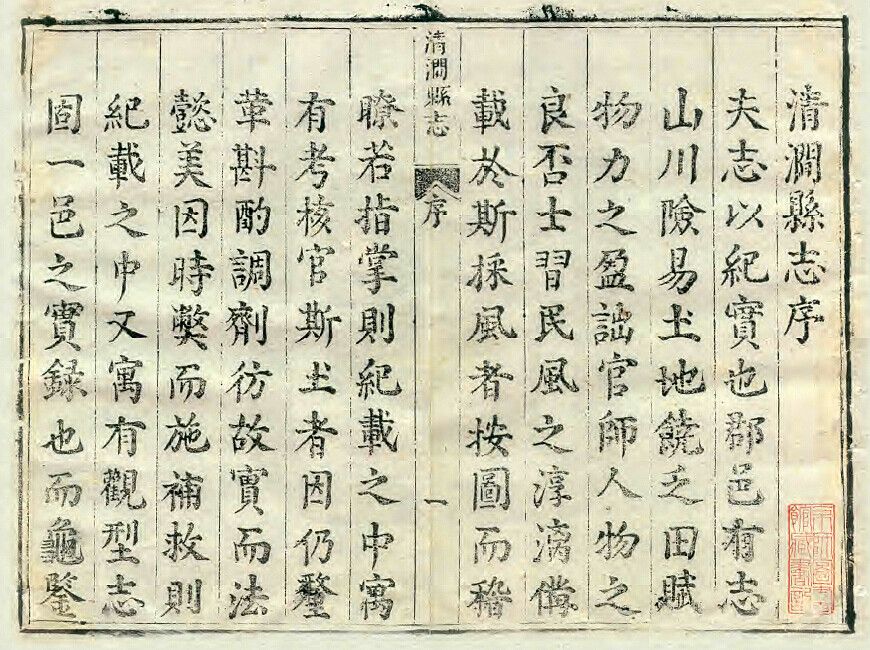 清澗縣志序
夫志以紀實也郡邑有志
山川險易圡地饒乏田賦
物力之盈詘官師人物之
良否士習民風之淳漓僃
載於斯採風者按圖而稽
清澗縣志 序 一
瞭若指掌則紀載之中寓
有考核官斯圡者因仍釐
革斟酌調劑彷故實而法
懿美因時獘而施補救則
紀載之中又寓有觀型志
固一邑之實録也而龜鑒